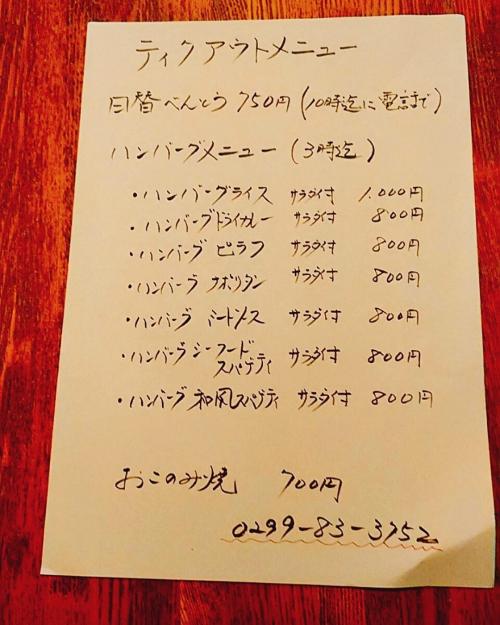 ティクアウトメニュー
日替べんとう 750円(10時迄に電話で)
ハンバーグメニュー (3時迄)
・ハンバーグライス サラダ付 1.000円
・ハンバーグドライカレー サラダ付 800円
・ハンバーグ ピラフ サラダ付 800円
・ハンバーグ ナポリタン サラダ付 800円
・ハンバーグ ミートソース サラダ付 800円
・ハンバーグシーフード
スパゲティ サラダ付 800円
・ハンバーグ 和風スパゲティ サラダ付 800円
おこのみ焼 700円
0299-83-3752